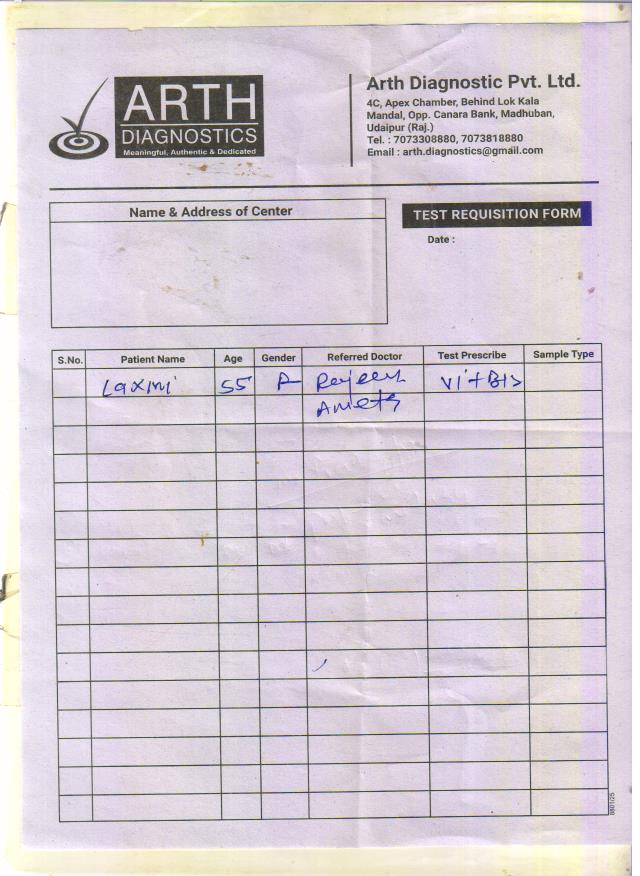 ARTH
DIAGNOSTICS
Meaningful, Authentic & Dedicated
Arth Diagnostic Pvt. Ltd.
4C, Apex Chamber, Behind Lok Kala
Mandal, Opp. Canara Bank, Madhuban,
Udaipur (Raj.)
Tel. : 7073308880, 7073818880
Email : arth.diagnostics@gmail.com
Name & Address of Center
TEST REQUISITION FORM
Date :
S.No. Patient Name Age Gender Referred Doctor Test Prescribe Sample Type
Laxmi 55 Vit B12